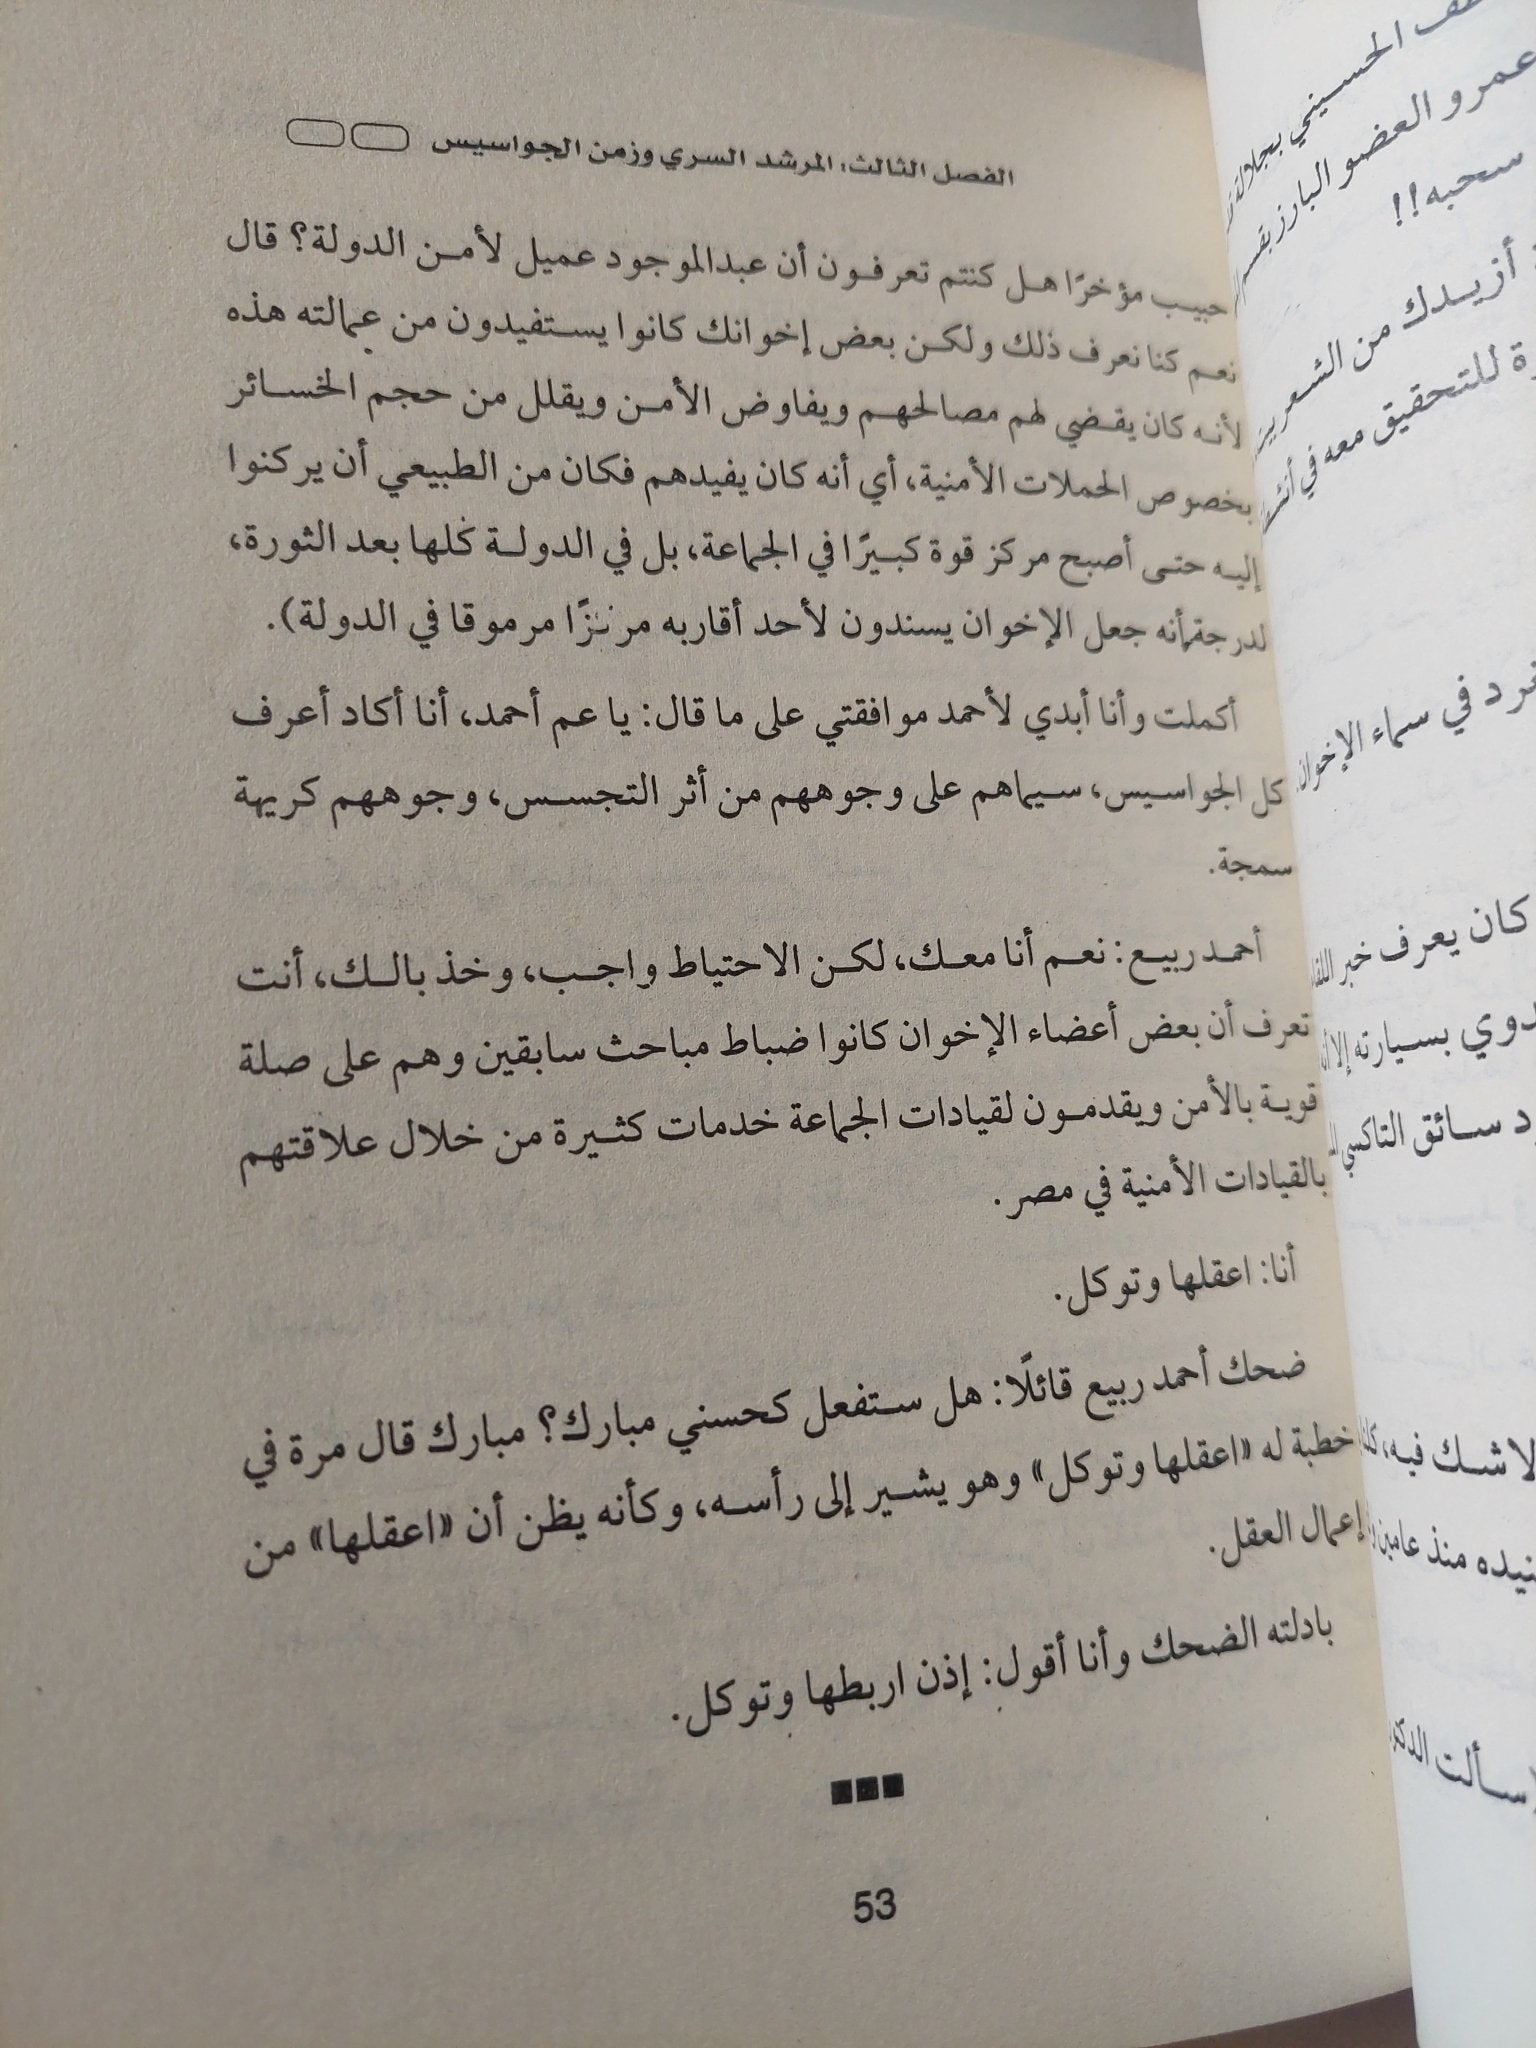 الفصل الثالث: المرشد السري وزمن الجواسيس
حبيب مؤخرًا هل كنتم تعرفون أن عبدالموجود عميل لأمن الدولة؟ قال
نعم كنا نعرف ذلك ولكن بعض إخوانك كانوا يستفيدون من عمالته هذه
لأنه كان يقضي لهم مصالحهم ويفاوض الأمن ويقلل من حجم الخسائر
بخصوص الحملات الأمنية، أي أنه كان يفيدهم فكان من الطبيعي أن يركنوا
إليه حتى أصبح مركز قوة كبيرًا في الجماعة، بل في الدولة كلها بعد الثورة،
لدرجة أنه جعل الإخوان يسندون لأحد أقاربه مركزًا مرموقا في الدولة).
أكملت وأنا أبدي لأحمد موافقتي على ما قال: يا عم أحمد، أنا أكاد أعرف
كل الجواسيس، سيماهم على وجوههم من أثر التجسس، وجوههم كريهة
سمجة.
أحمد ربيع: نعم أنا معك، لكن الاحتياط واجب، وخذ بالك، أنت
تعرف أن بعض أعضاء الإخوان كانوا ضباط مباحث سابقين وهم على صلة
قوية بالأمن ويقدمون لقيادات الجماعة خدمات كثيرة من خلال علاقتهم
بالقيادات الأمنية في مصر.
أنا: اعقلها وتوكل.
ضحك أحمد ربيع قائلًا: هل ستفعل كحسني مبارك؟ مبارك قال مرة في
خطبة له «اعقلها وتوكل» وهو يشير إلى رأسه، وكأنه يظن أن «اعقلها» من
إعمال العقل.
بادلته الضحك وأنا أقول: إذن اربطها وتوكل.
53
الحسيني بجلالة
عمرو العضو البارز بقسم
سحبه!!
أزيدك من الشعر
للتحقيق معه في
في سماء الإخوان
كان يعرف خبر
بسيارته إلا
سائق التاكسي
لا شك فيه،
منذ عامين
سألت